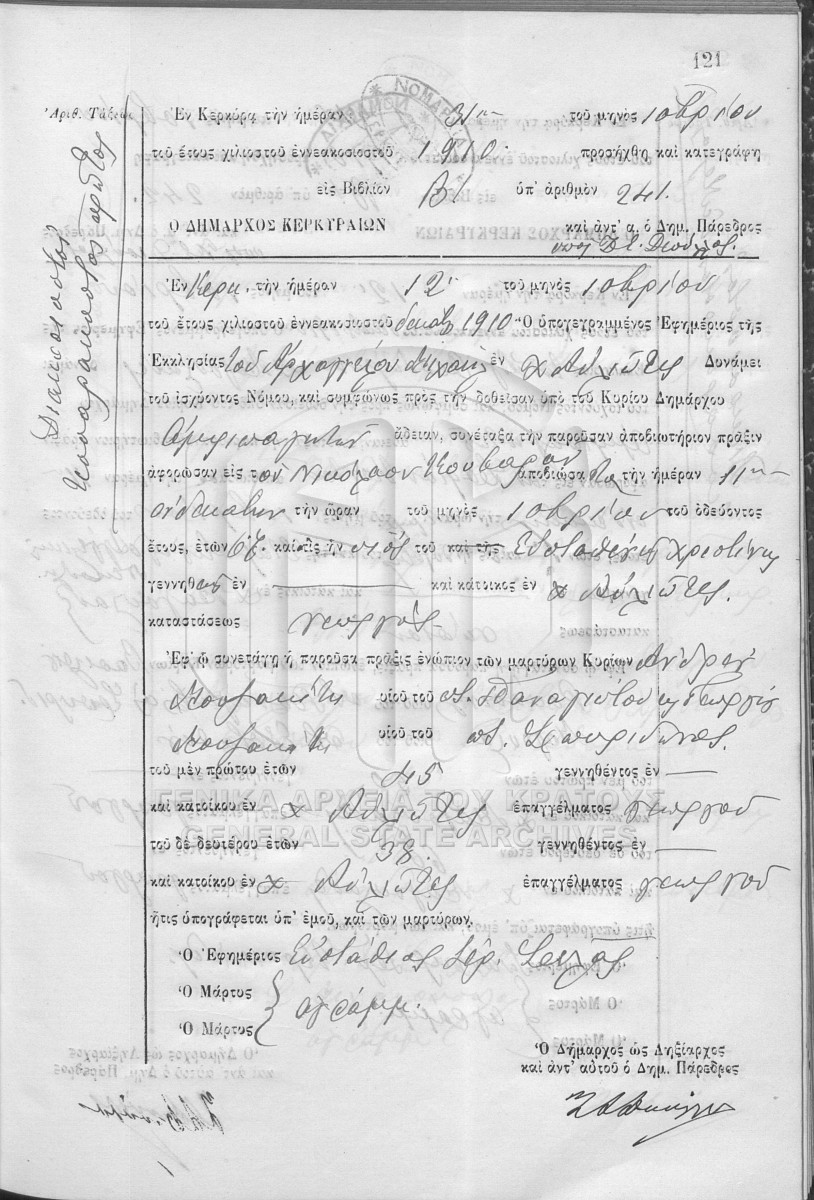 121
Ἀριθ. Τάξεως
Ἐν Κερκύρᾳ τὴν ἡμέραν 31ην τοῦ μηνὸς 10βρίου
τοῦ ἔτους χιλιοστοῦ ἐννεακοσιοστοῦ 1910 προσήχθη καὶ κατεγράφη
εἰς Βιβλίον Β' ὑπ' ἀριθμὸν 241.
Ο ΔΗΜΑΡΧΟΣ ΚΕΡΚΥΡΑΙΩΝ καὶ ἀντ' α. ὁ Δημ. Πάρεδρος
Διακοσιοστὸν
τεσσαρακοστὸν πρῶτον
Ἐν Κερκ. τὴν ἡμέραν 12 τοῦ μηνὸς 10βρίου
τοῦ ἔτους χιλιοστοῦ ἐννεακοσιοστοῦ δεκάτου 1910 Ὁ ὑπογεγραμμένος Ἐφημέριος τῆς
Ἐκκλησίας τοῦ Ἀρχαγγέλου Μιχαὴλ ἐν χ Αὐλιῶτες Δυνάμει
τοῦ ἰσχύοντος Νόμου, καὶ συμφώνως πρὸς τὴν δοθεῖσαν ὑπὸ τοῦ Κυρίου Δημάρχου
ἄδειαν, συνέταξα τὴν παροῦσαν ἀποβιωτήριον πρᾶξιν
ἀφορῶσαν εἰς τὸν Νικόλαον Κούβαρον ἀποβιώσαντα τὴν ἡμέραν 11ην
ἑνδεκάτην τὴν ὥραν τοῦ μηνὸς 10βρίου τοῦ ὁδεύοντος
ἔτους, ἐτῶν καὶ τὶς ἦν υἱὸς τοῦ καὶ τῆς Εὐσταθίου Χριστίνης
γεννηθεὶς ἐν καὶ κάτοικος ἐν χ Αὐλιῶτες.
καταστάσεως γεωργός
Ἐφ' ᾧ συνετάγη ἡ παροῦσα πρᾶξις ἐνώπιον τῶν μαρτύρων Κυρίων Ἀνδρέου
Κουβακίτη υἱοῦ τοῦ ποτ. Παναγιώτου κ Γεωργίου
Κουβακίτη υἱοῦ τοῦ ποτ. Σπυρίδωνος.
τοῦ μὲν πρώτου ἐτῶν 45 γεννηθέντος ἐν
καὶ κατοίκου ἐν χ Αὐλιῶτες ἐπαγγέλματος γεωργοῦ
ΓΕΝΙΚΑ ΑΡΧΕΙΑ ΤΟΥ ΚΡΑΤΟΥΣ
GENERAL STATE ARCHIVES
τοῦ δὲ δευτέρου ἐτῶν 38. γεννηθέντος ἐν
καὶ κατοίκου ἐν χ Αὐλιῶτες ἐπαγγέλματος γεωργοῦ
ἥτις ὑπογράφεται ὑπ' ἐμοῦ, καὶ τῶν μαρτύρων.
Ὁ Ἐφημέριος Εὐστάθιος Ἱερ.
Ὁ Μάρτυς
ἀγράμμ.
Ὁ Μάρτυς
Ὁ Δήμαρχος ὡς Ληξίαρχος
καὶ ἀντ' αὐτοῦ ὁ Δημ. Πάρεδρος